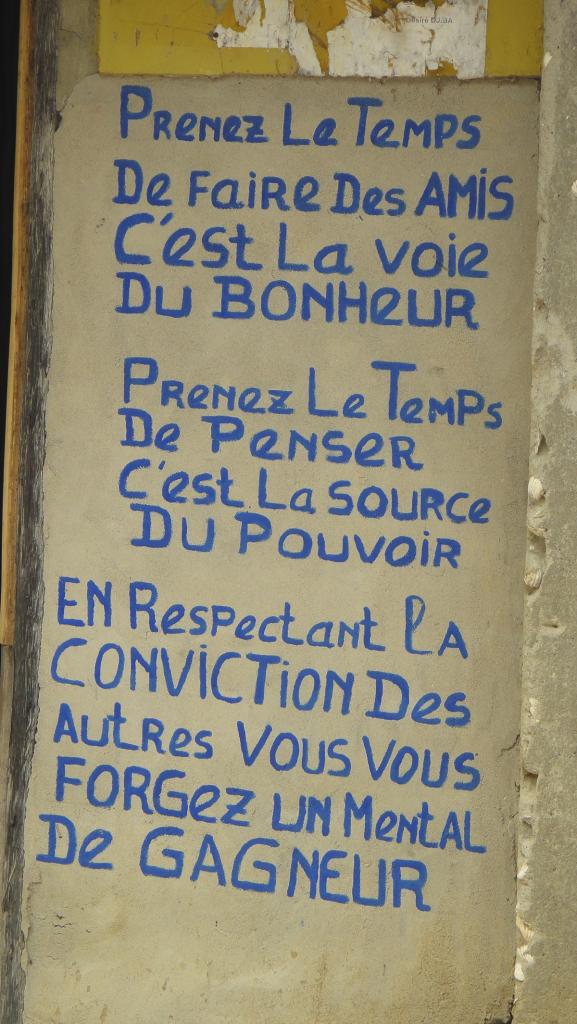 Désiré DJ.BA
PReNez Le TeMPS
De FaiRe Des AMiS
C'est La Voie
Du BONHeUR
PReNez Le TeMPs
De PeNSeR
C'est La SOURCe
DU POUVOiR
EN Respectant LA
CONViCTiON Des
AUtRes VOUS VOUS
FORGez UN MentAL
De GAGNEUR